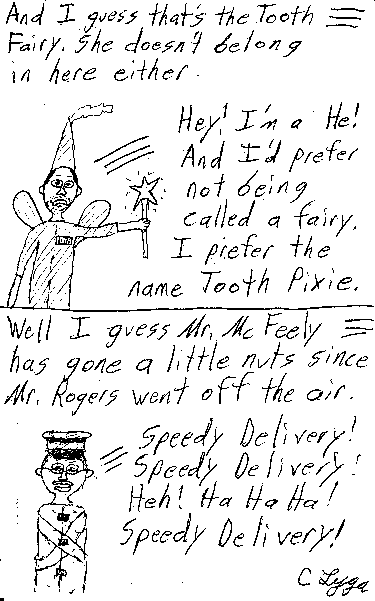 And I guess that's the Tooth
Fairy. She doesn't belong
in here either.
Hey! I'm a He!
And I'd prefer
not being
called a fairy.
I prefer the
name Tooth Pixie.
Well I guess Mr. Mc Feely
has gone a little nuts since
Mr. Rogers went off the air.
Speedy Delivery!
Speedy Delivery!
Heh! Ha Ha Ha!
Speedy Delivery!
C Lyga